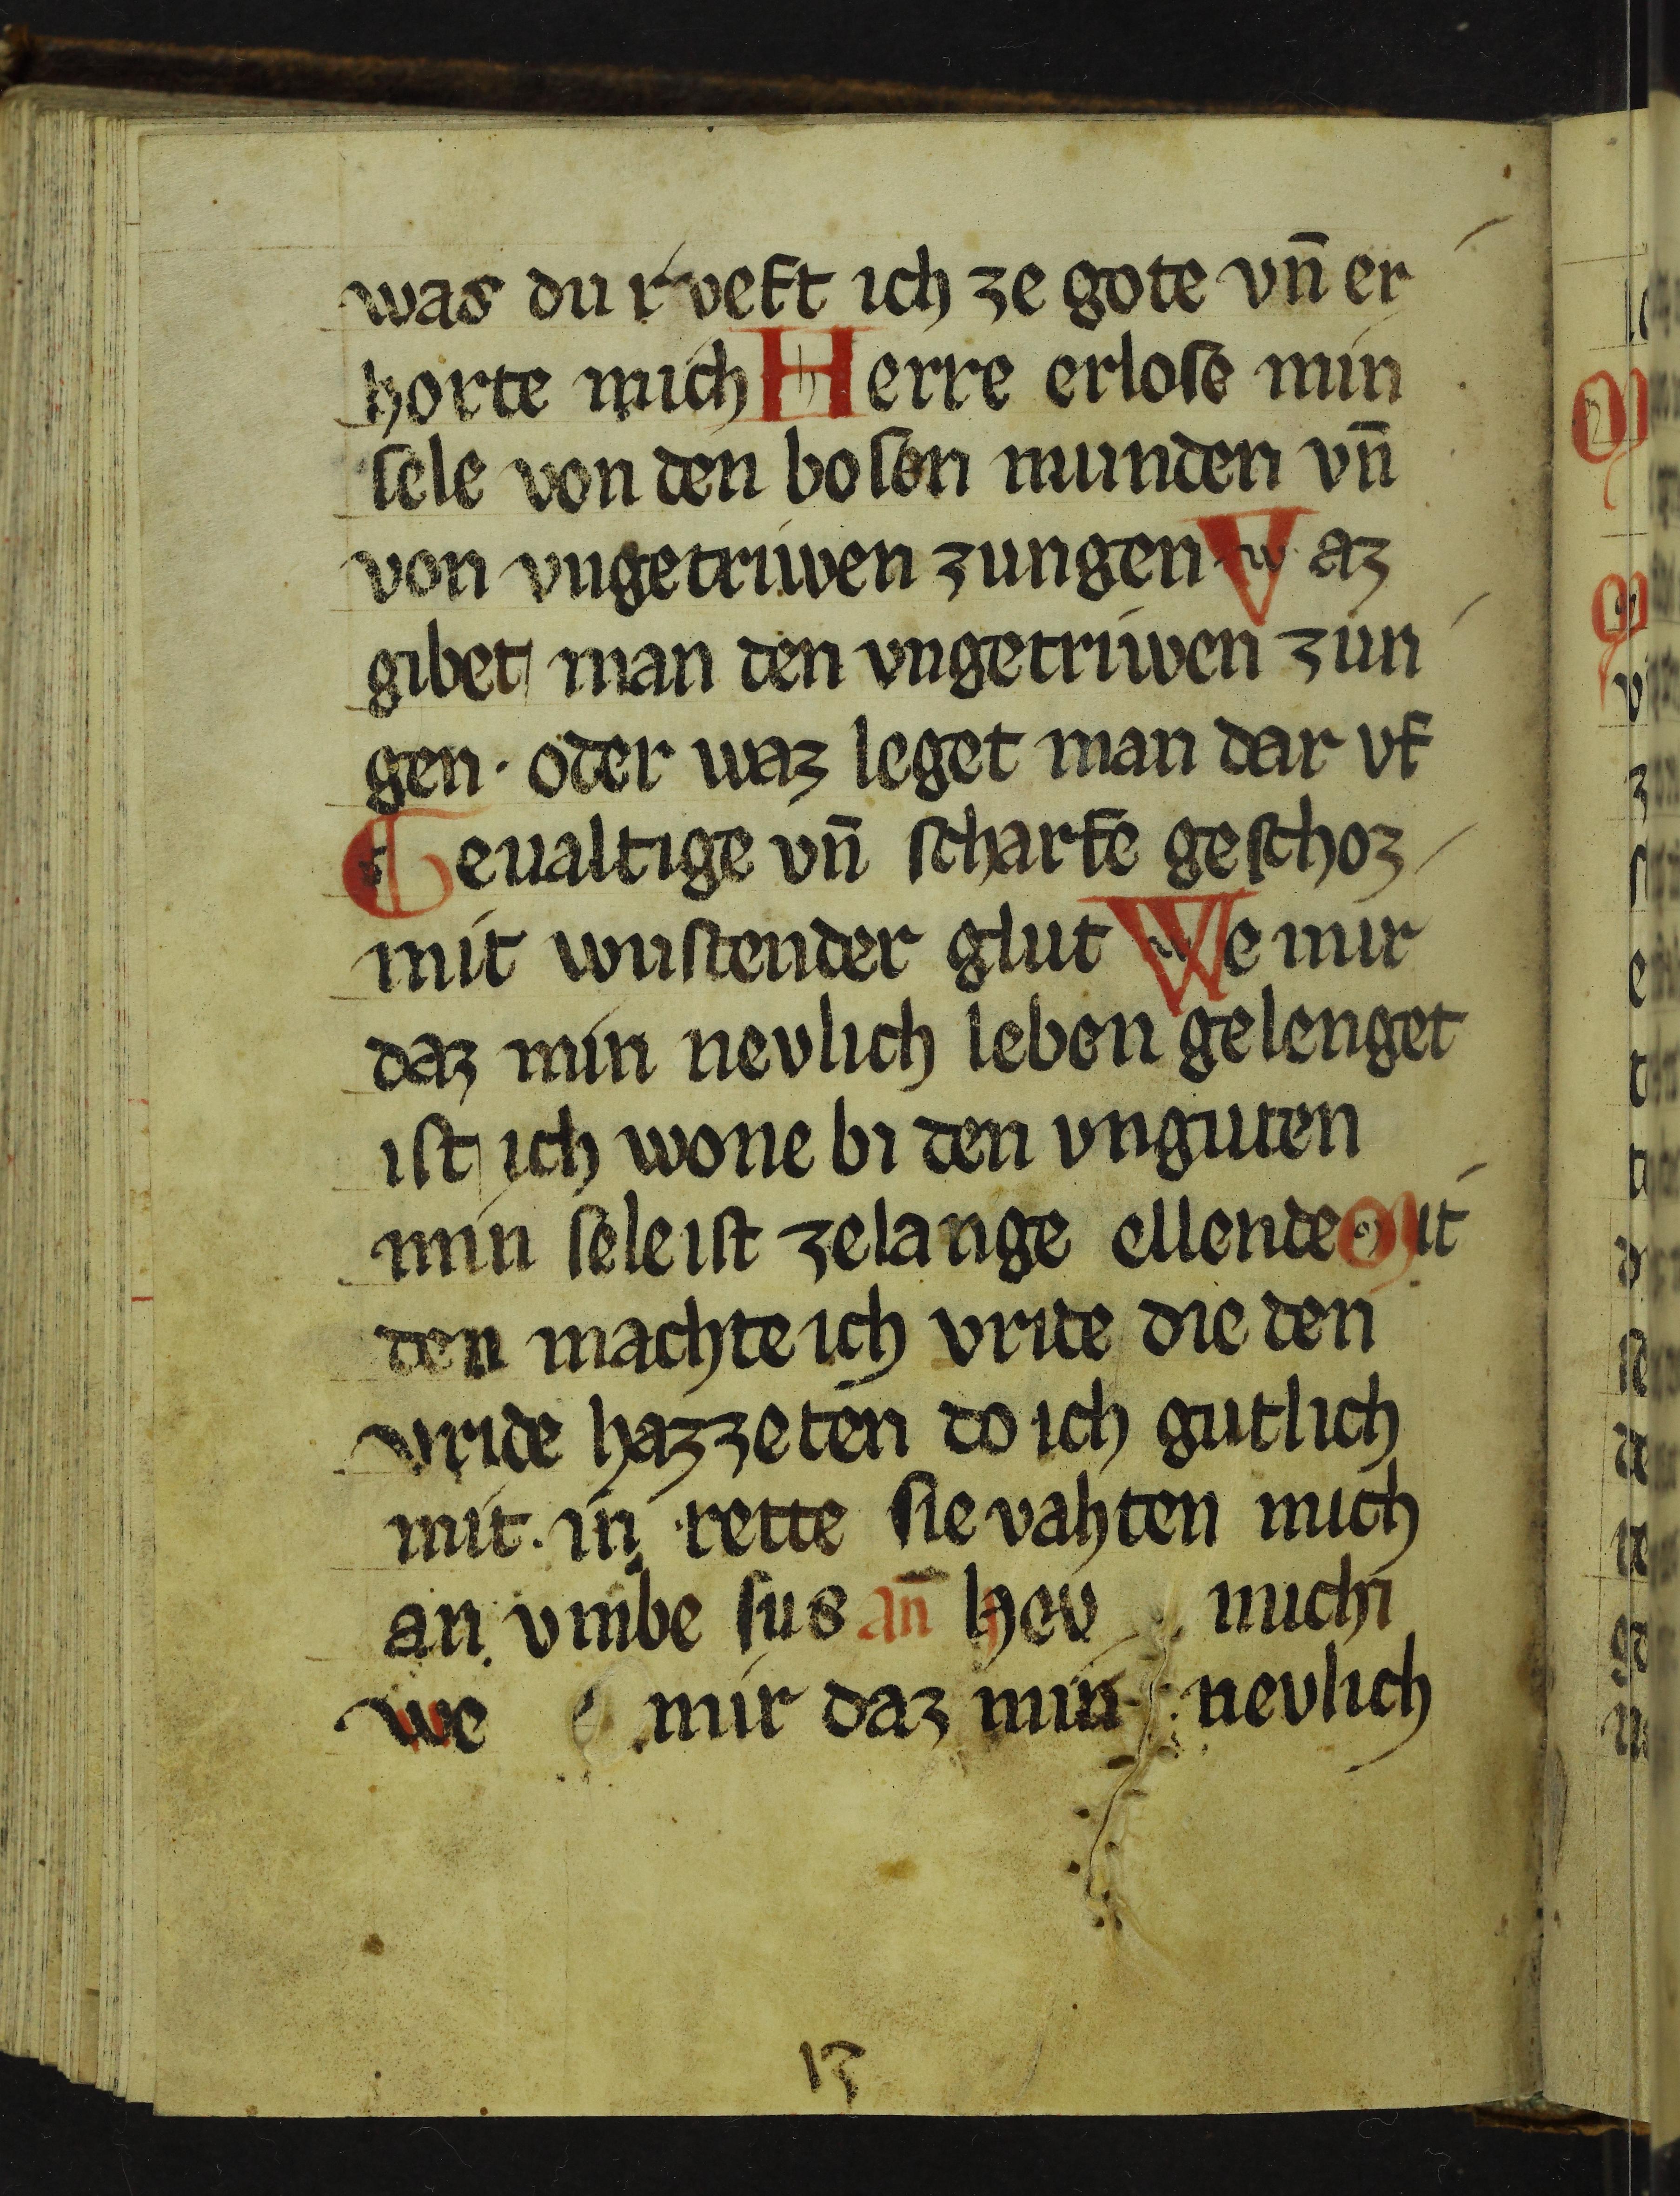 was du rveft ich ze gote vn̄ er
horte mich Herre erlose min
sele von den bosen munden vn̄
von vngetriwen zungen Waz
gibet man den vngetriwen zun
gen · oder waz leget man dar vf
Gevaltige vn̄ scharfe geschoz
mit wustender glut We mir
daz min nevlich leben gelenget
ist ich wone bi den vnguten
min sele ist zelange ellende Mit
den machte ich vride die den
vride hazzeten do ich gutlich
mit · in rette sie vahten mich
an vmbe sus an̄ Hev michi
we mir daz min nevlich